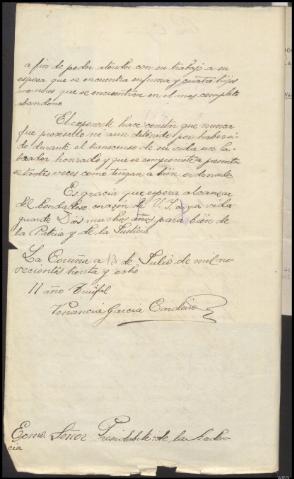 a fin de poder atender con su trabajo a su
esposa que se encuentra enferma y cuatro hijos
menores que se encuentran en el mas completo
abandono
El exponente hace constar que nunca
fue procesado ni aun detenido por haber si
do durante el transcurso de su vida un tra
bajador honrado y que se compromete a presentar
se tantas veces como tengan a bien ordenarle.
Es gracia que espera alcanzar
del bondadoso corazon de V.I. cuya vida
guarde Dios muchos años para bien de
la Patria y de la Justicia
La Coruña a 13 de Julio de mil no
vecientos treinta y ocho
II año Triunfal
Venancio Garcia
Excmo. Señor Presidente de la Audien
cia